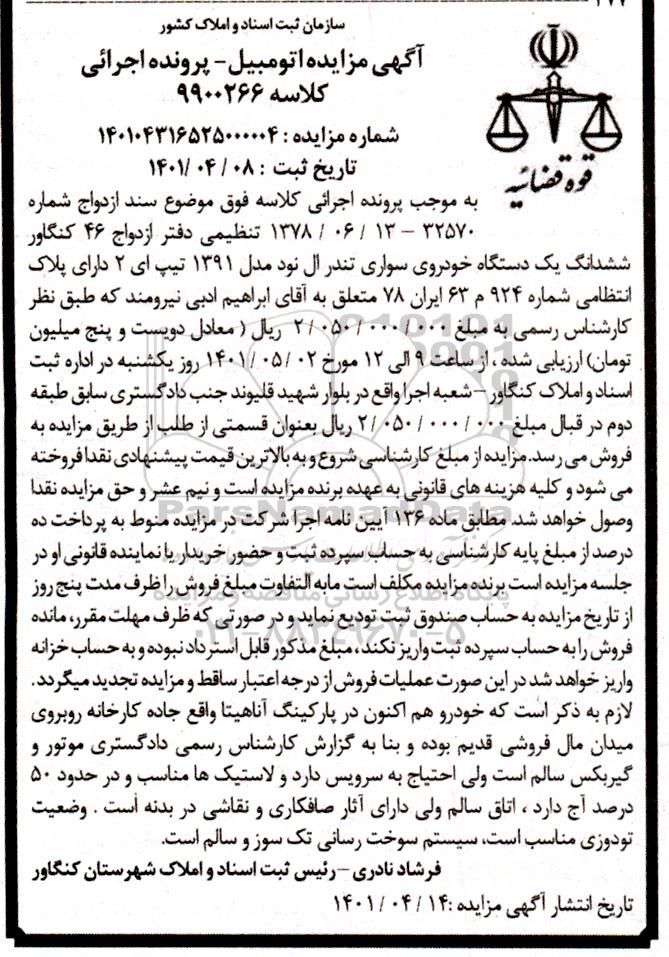 سازمان ثبت اسناد و املاک کشور
آگهی مزایده اتومبیل - پرونده اجرائی
کلاسه ۹۹۰۰۲۶۶
شماره مزایده : ۱۴۰۱۰۴۳۱۶۵۲۵۰۰۰۰۰۴
تاریخ ثبت : ۰۸ / ۰۴ /۱۴۰۱
قوه قضائیه
به موجب پرونده اجرائی کلاسه فوق موضوع سند ازدواج شماره
۳۲۵۷۰ – ۱۳ / ۰۶ / ۱۳۷۸ تنظیمی دفتر ازدواج ۴۶ کنگاور
ششدانگ یک دستگاه خودروی سواری تندر ال نود مدل ۱۳۹۱ تیپ ای ۲ دارای پلاک
انتظامی شماره ۹۲۴ م ۶۳ ایران ۷۸ متعلق به آقای ابراهیم ادبی نیرومند که طبق نظر
کارشناس رسمی به مبلغ ۰۰۰/ ۰۰۰/ ۰۵۰/ ۲ ریال ( معادل دویست و پنج میلیون
تومان) ارزیابی شده ، از ساعت ۹ الی ۱۲ مورخ ۰۲ / ۰۵ /۱۴۰۱ روز یکشنبه در اداره ثبت
اسناد و املاک کنگاور – شعبه اجرا واقع در بلوار شهید قلیوند جنب دادگستری سابق طبقه
دوم در قبال مبلغ ۰۰۰ / ۰۰۰ / ۰۵۰ /۲ ریال بعنوان قسمتی از طلب از طریق مزایده به
فروش می رسد.مزایده از مبلغ کارشناسی شروع و به بالاترین قیمت پیشنهادی نقدا فروخته
می شود و کلیه هزینه های قانونی به عهده برنده مزایده است و نیم عشر و حق مزایده نقدا
وصول خواهد شد. مطابق ماده ۱۳۶ آیین نامه اجرا شرکت در مزایده منوط به پرداخت ده
درصد از مبلغ پایه کارشناسی به حساب سپرده ثبت و حضور خریدار یا نماینده قانونی او در
جلسه مزایده است برنده مزایده مکلف است مابه التفاوت مبلغ فروش را ظرف مدت پنج روز
از تاریخ مزایده به حساب صندوق ثبت تودیع نماید و در صورتی که ظرف مهلت مقرر، مانده
فروش را به حساب سپرده ثبت واریز نکند، مبلغ مذکور قابل استرداد نبوده و به حساب خزانه
واریز خواهد شد در این صورت عملیات فروش از درجه اعتبار ساقط و مزایده تجدید میگردد.
لازم به ذکر است که خودرو هم اکنون در پارکینگ آناهیتا واقع جاده کارخانه روبروی
میدان مال فروشی قدیم بوده و بنا به گزارش کارشناس رسمی دادگستری موتور و
گیربکس سالم است ولی احتیاج به سرویس دارد و لاستیک ها مناسب و در حدود ۵۰
درصد آج دارد ، اتاق سالم ولی دارای آثار صافکاری و نقاشی در بدنه است . وضعیت
تودوزی مناسب است، سیستم سوخت رسانی تک سوز و سالم است.
فرشاد نادری – رئیس ثبت اسناد و املاک شهرستان کنگاور
تاریخ انتشار آگهی مزایده : ۱۴ / ۰۴ / ۱۴۰۱
ParsNamadData
پایگاه اطلاع رسانی مناقصه و مزایده
۰۲۱-۸۸۳۴۹۶۷۰-۵